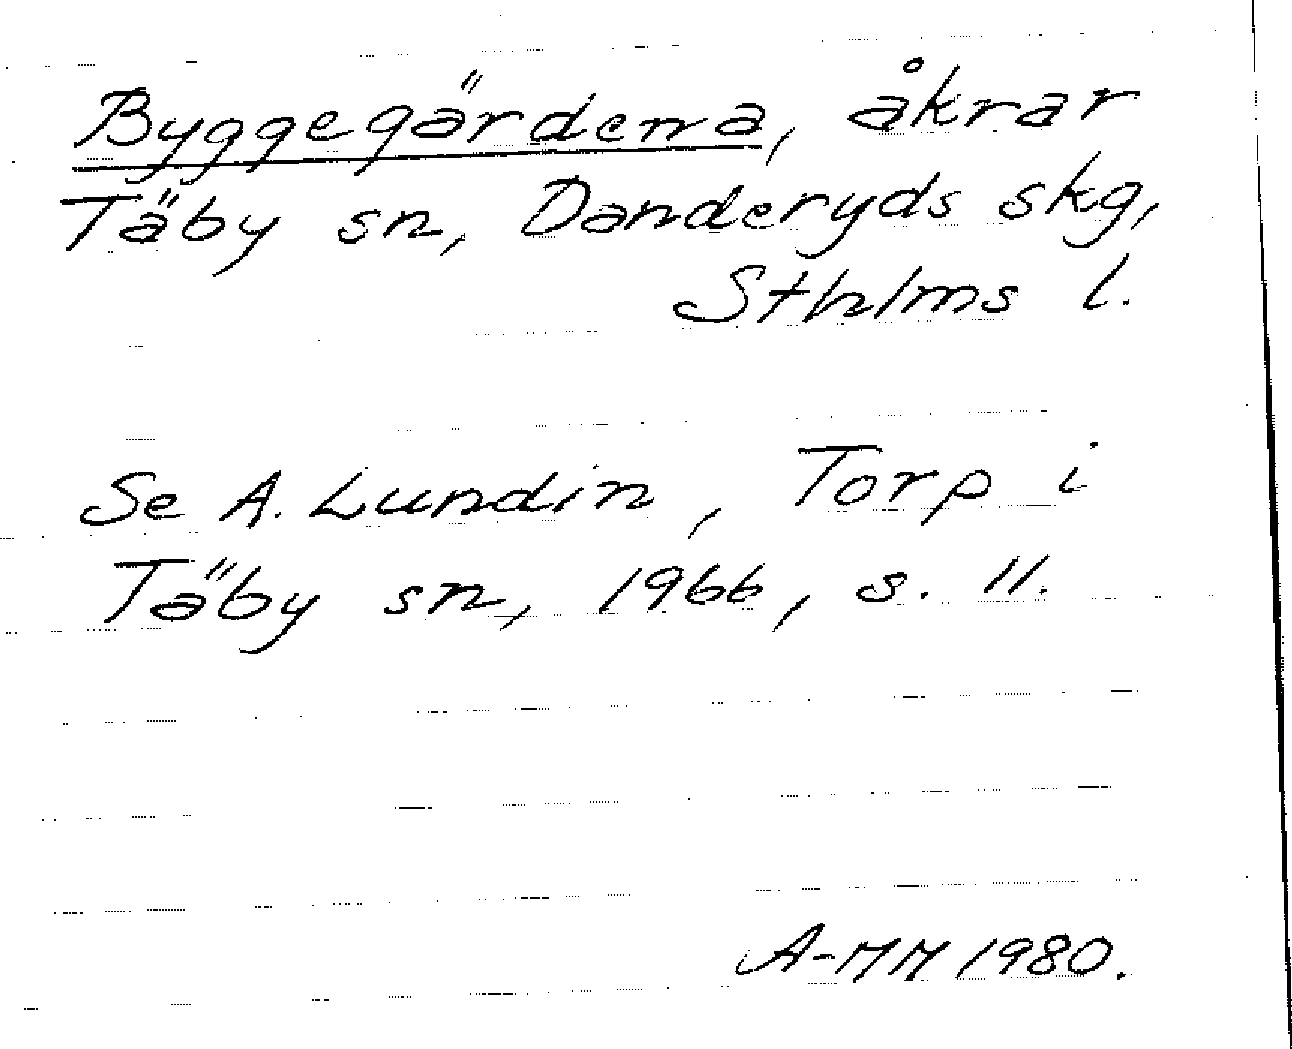 Byggegärdena, åkrar
Täby sn, Danderyds skg,
Sthlms l.
Se A. Lundin, Torp i
Täby sn, 1966, s. 11.
A-MM 1980.